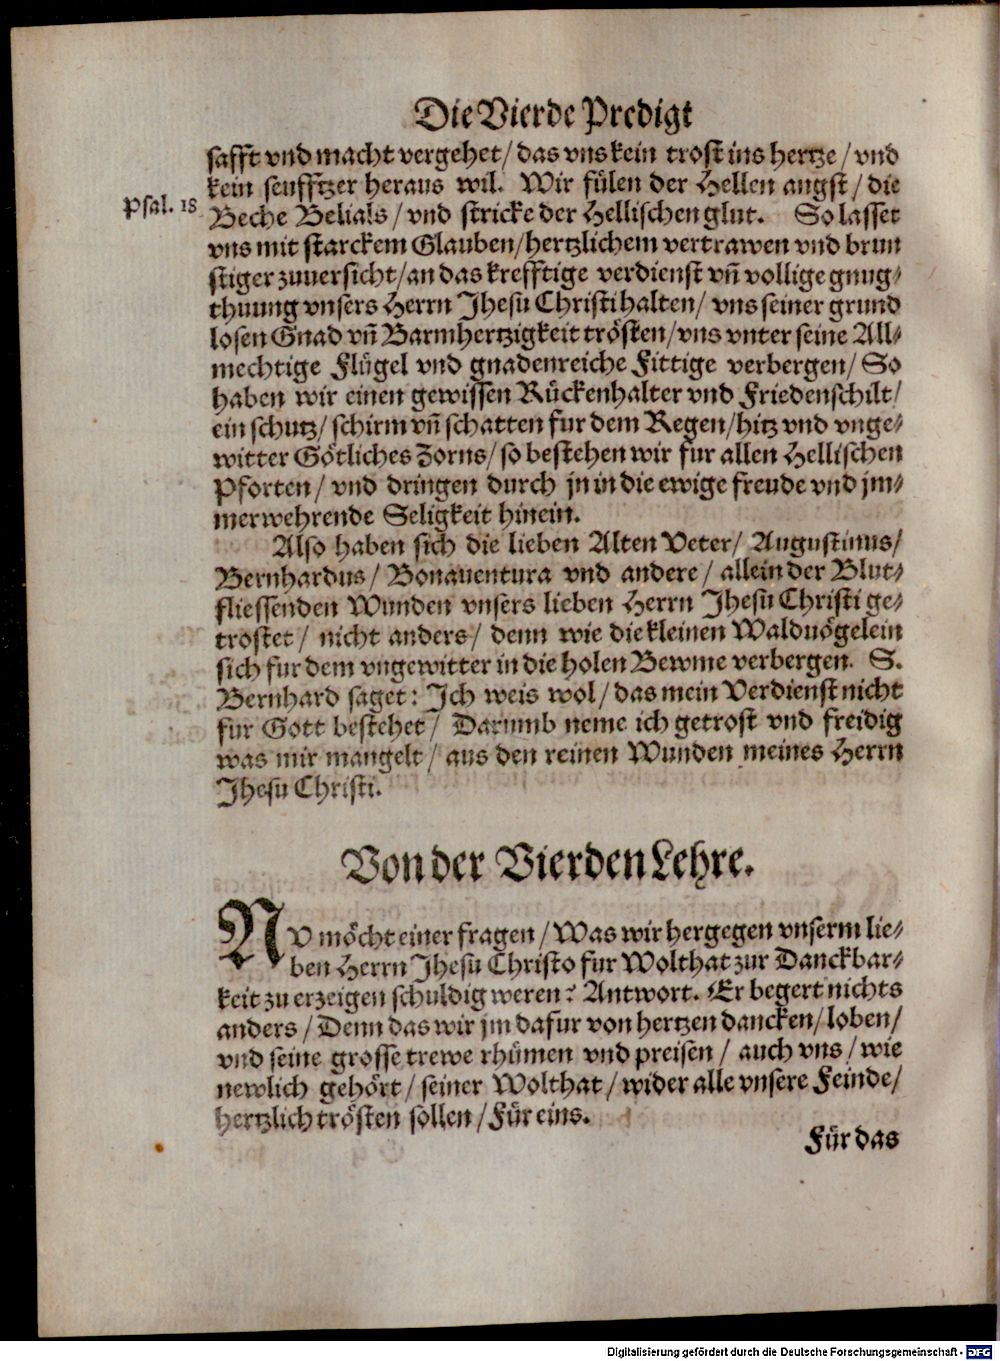 Die Vierde Predigt
safft vnd macht vergehet/ das vns kein trost ins hertze/ vnd
kein seufftzer heraus wil. Wir fülen der Hellen angst/ die
Psal. 18
Beche Belials/ vnd stricke der Hellischen glut. So lasset
vns mit starckem Glauben/ hertzlichem vertrawen vnd brun
stiger zuuersicht/ an das krefftige verdienst vñ vollige gnug-
thuung vnsers Herrn Jhesu Christi halten/ vns seiner grund
losen Gnad vñ Barmhertzigkeit trösten/ vns vnter seine All-
mechtige Flügel vnd gnadenreiche Fittige verbergen/ So
haben wir einen gewissen Rückenhalter vnd Friedenschilt/
ein schutz/ schirm vñ schatten fur dem Regen/ hitz vnd vnge-
witter Götliches Zorns/ so bestehen wir fur allen Hellischen
Pforten/ vnd dringen durch jn in die ewige freude vnd jm-
merwehrende Seligkeit hinein.
Also haben sich die lieben Alten Veter/ Augustinus/
Bernhardus/ Bonauentura vnd andere/ allein der Blut-
fliessenden Wunden vnsers lieben Herrn Jhesu Christi ge-
tröstet/ nicht anders/ denn wie die kleinen Walduögelein
sich fur dem vngewitter in die holen Bewme verbergen. S.
Bernhard saget: Ich weis wol/ das mein Verdienst nicht
fur Gott bestehet/ Darumb neme ich getrost vnd freidig
was mir mangelt/ aus den reinen Wunden meines Herrn
Jhesu Christi.
Von der Vierden Lehre.
NV möcht einer fragen/ Was wir hergegen vnserm lie-
ben Herrn Jhesu Christo fur Wolthat zur Danckbar-
keit zu erzeigen schuldig weren? Antwort. Er begert nichts
anders/ Denn das wir jm dafur von hertzen dancken/ loben/
vnd seine grosse trewe rhümen vnd preisen/ auch vns/ wie
newlich gehört/ seiner Wolthat/ wider alle vnsere Feinde/
hertzlich trösten sollen/ Für eins.
Für das
Digitalisierung gefördert durch die Deutsche Forschungsgemeinschaft - DFG